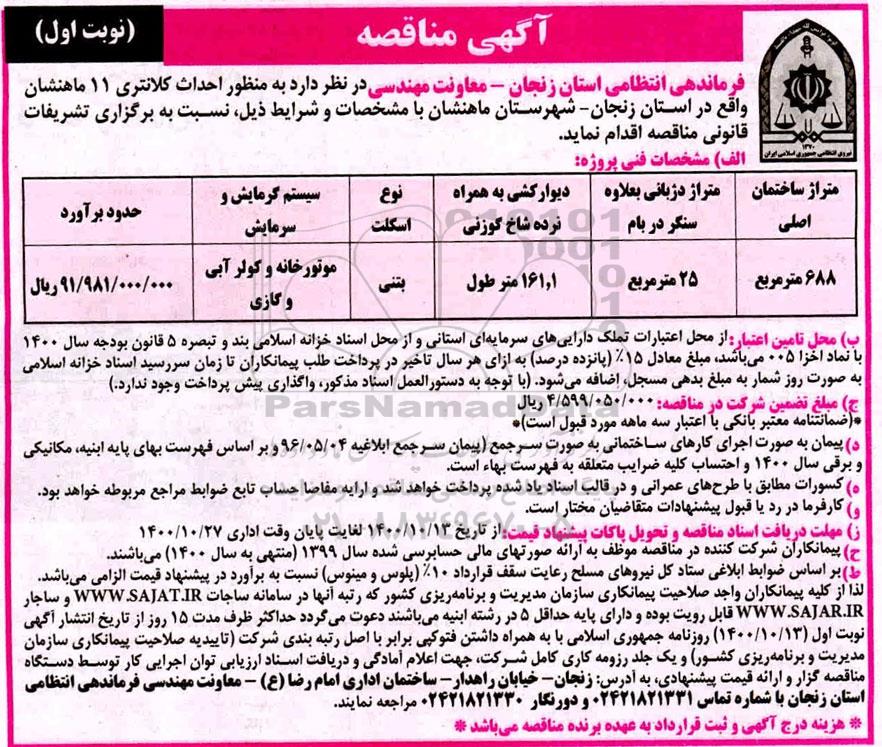 آگهی مناقصه
(نوبت اول)
نیروی انتظامی جمهوری اسلامی ایران
۱۳۷۰
فرماندهی انتظامی استان زنجان – معاونت مهندسی در نظر دارد به منظور احداث کلانتری ۱۱ ماهنشان
واقع در استان زنجان- شهرستان ماهنشان با مشخصات و شرایط ذیل، نسبت به برگزاری تشریفات
قانونی مناقصه اقدام نماید.
الف) مشخصات فنی پروژه:
متراژ ساختمان اصلی | متراژ دژبانی بعلاوه سنگر در بام | دیوارکشی به همراه نرده شاخ گوزنی | نوع اسکلت | سیستم گرمایش و سرمایش | حدود برآورد
۶۸۸ مترمربع | ۲۵ مترمربع | ۱۶۱,۱ متر طول | بتنی | موتورخانه و کولر آبی و گازی | ۹۱/۹۸۱/۰۰۰/۰۰۰ ریال
ب) محل تامین اعتبار: از محل اعتبارات تملک دارایی‌های سرمایه‌ای استانی و از محل اسناد خزانه اسلامی بند و تبصره ۵ قانون بودجه سال ۱۴۰۰
با نماد اخزا ۰۰۵ می‌باشد، مبلغ معادل ۱۵٪ (پانزده درصد) به ازای هر سال تاخیر در پرداخت طلب پیمانکاران تا زمان سررسید اسناد خزانه اسلامی
به صورت روز شمار به مبلغ بدهی مسجل، اضافه می‌شود. (با توجه به دستورالعمل اسناد مذکور، واگذاری پیش پرداخت وجود ندارد.)
ج) مبلغ تضمین شرکت در مناقصه: ۴/۵۹۹/۰۵۰/۰۰۰ ریال
*(ضمانتنامه معتبر بانکی با اعتبار سه ماهه مورد قبول است)*
د) پیمان به صورت اجرای کارهای ساختمانی به صورت سرجمع (پیمان سرجمع ابلاغیه ۹۶/۰۵/۰۴ و بر اساس فهرست بهای پایه ابنیه، مکانیکی
و برقی سال ۱۴۰۰ و احتساب کلیه ضرایب متعلقه به فهرست بهاء است.
ه) کسورات مطابق با طرح‌های عمرانی و در قالب اسناد یاد شده پرداخت خواهد شد و ارایه مفاصا حساب تابع ضوابط مراجع مربوطه خواهد بود.
و) کارفرما در رد یا قبول پیشنهادات متقاضیان مختار است.
ز) مهلت دریافت اسناد مناقصه و تحویل پاکات پیشنهاد قیمت: از تاریخ ۱۴۰۰/۱۰/۱۳ لغایت پایان وقت اداری ۱۴۰۰/۱۰/۲۷
ح) پیمانکاران شرکت کننده در مناقصه موظف به ارائه صورتهای مالی حسابرسی شده سال ۱۳۹۹ (منتهی به سال ۱۴۰۰) می‌باشند.
ط) بر اساس ضوابط ابلاغی ستاد کل نیروهای مسلح رعایت سقف قرارداد ۱۰٪ (پلوس و مینوس) نسبت به برآورد در پیشنهاد قیمت الزامی می‌باشد.
لذا از کلیه پیمانکاران واجد صلاحیت پیمانکاری سازمان مدیریت و برنامه‌ریزی کشور که رتبه آنها در سامانه ساجات WWW.SAJAT.IR و ساجار
WWW.SAJAR.IR قابل رویت بوده و دارای پایه حداقل ۵ در رشته ابنیه می‌باشند دعوت می‌گردد حداکثر ظرف مدت ۱۵ روز از تاریخ انتشار آگهی
نوبت اول (۱۴۰۰/۱۰/۱۳) روزنامه جمهوری اسلامی با به همراه داشتن فتوکپی برابر با اصل رتبه بندی شرکت (تاییدیه صلاحیت پیمانکاری سازمان
مدیریت و برنامه‌ریزی کشور) و یک جلد رزومه کاری کامل شرکت، جهت اعلام آمادگی و دریافت اسناد ارزیابی توان اجرایی کار توسط دستگاه
مناقصه گزار و ارائه قیمت پیشنهادی، به آدرس: زنجان- خیابان راهدار- ساختمان اداری امام رضا (ع) – معاونت مهندسی فرماندهی انتظامی
استان زنجان با شماره تماس ۰۲۴۲۱۸۲۱۳۳۱ و دورنگار ۰۲۴۲۱۸۲۱۳۳۰ مراجعه نمایند.
* هزینه درج آگهی و ثبت قرارداد به عهده برنده مناقصه می‌باشد *
ParsNamadData